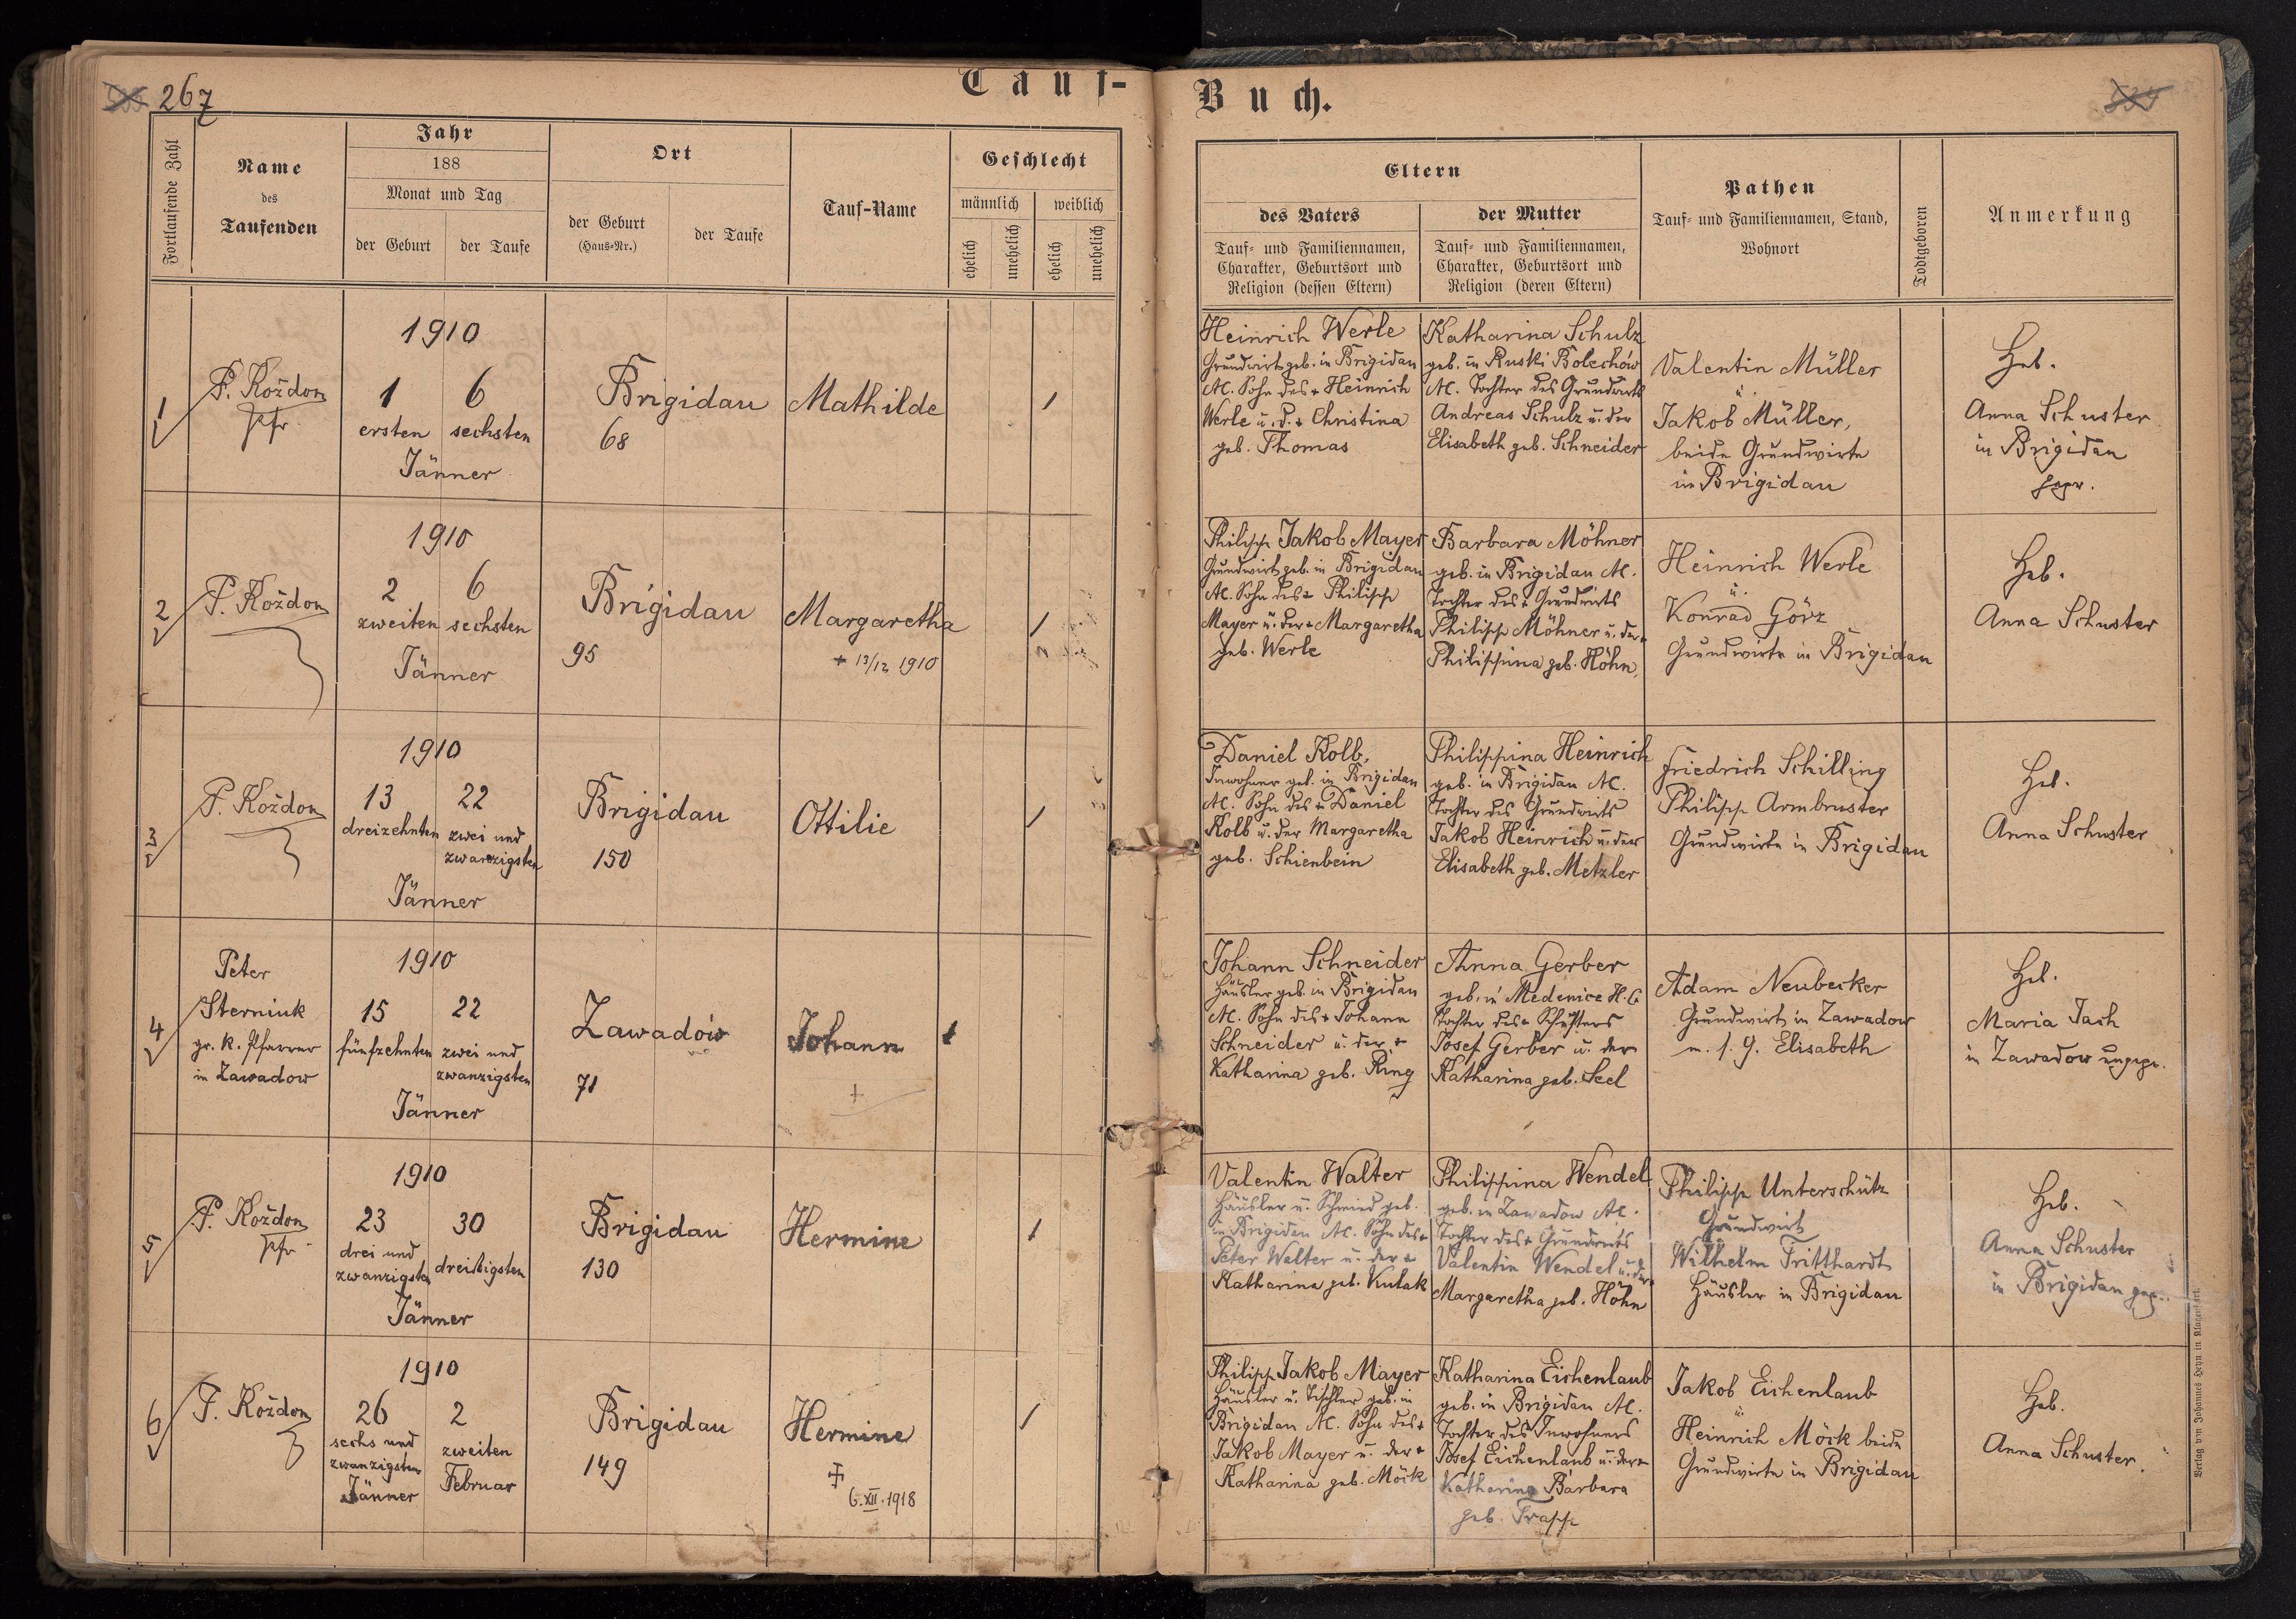 267
Tauf-Buch.
Fortlaufende Zahl
Name
des
Taufenden
Jahr
188
Monat und Tag
der Geburt
der Taufe
Ort
der Geburt
(Haus-Nr.)
der Taufe
Tauf-Name
Geschlecht
männlich
weiblich
ehelich
unehelich
ehelich
unehelich
Eltern
des Vaters
Tauf- und Familiennamen,
Charakter, Geburtsort und
Religion (dessen Eltern)
der Mutter
Tauf- und Familiennamen,
Charakter, Geburtsort und
Religion (deren Eltern)
Pathen
Tauf- und Familiennamen, Stand,
Wohnort
Todtgeboren
Anmerkung
1
P. Koždon
Pfr.
1910
1 6
ersten sechsten
Jänner
Brigidau
68
Mathilde
1
Heinrich Werle
Grundwirt geb. in Brigidau
A.C. Sohn des + Heinrich
Werle u. d. + Christina
geb. Thomas
Katharina Schulz
geb. in Ruski Bolechów
A.C. Tochter des Grundwirts
Andreas Schulz u. der
Elisabeth geb. Schneider
Valentin Müller
u.
Jakob Müller,
beide Grundwirte
in Brigidau
Heb.
Anna Schuster
in Brigidau
gepr.
2
P. Koždon
1910
2 6
zweiten sechsten
Jänner
Brigidau
95
Margaretha
+ 13/12 1910
1
Philipp Jakob Mayer
Grundwirt geb. in Brigidau
A.C. Sohn des + Philipp
Mayer u. der + Margaretha
geb. Werle
Barbara Möhner
geb. in Brigidau A.C.
Tochter des + Grundwirts
Philipp Möhner u. der +
Philippina geb. Höhn
Heinrich Werle
u.
Konrad Görz
Grundwirte in Brigidau
Heb.
Anna Schuster
3
P. Koždon
1910
13 22
dreizehnten zwei und
zwanzigsten
Jänner
Brigidau
150
Ottilie
1
Daniel Kolb,
Inwohner geb. in Brigidau
A.C. Sohn des + Daniel
Kolb u. der Margaretha
geb. Schienbein
Philippina Heinrich
geb. in Brigidau A.C.
Tochter des Grundwirts
Jakob Heinrich u. der
Elisabeth geb. Metzler
Friedrich Schilling
Philipp Armbruster
Grundwirte in Brigidau
Heb.
Anna Schuster
4
Peter
Sterniuk
gr. k. Pfarrer
in Zawadow
1910
15 22
fünfzehnten zwei und
zwanzigsten
Jänner
Zawadów
71
Johann
+
1
Johann Schneider
Häusler geb. in Brigidau
A.C. Sohn des + Johann
Schneider u. der +
Katharina geb. Ring
Anna Gerber
geb. in Medenice H.C.
Tochter des + Schusters
Josef Gerber u. der
Katharina geb. Seel
Adam Neubecker
Grundwirt in Zawadow
m. s. G. Elisabeth
Heb.
Maria Jach
in Zawadow ungepr.
5
P. Koždon
Pfr.
1910
23 30
drei und
zwanzigsten dreißigsten
Jänner
Brigidau
130
Hermine
1
Valentin Walter
Häusler u. Schmied geb.
in Brigidau A.C. Sohn des +
Peter Walter u. der +
Katharina geb. Kulak
Philippina Wendel
geb. in Zawadow A.C.
Tochter des + Grundwirts
Valentin Wendel u. der +
Margaretha geb. Höhn
Philipp Unterschütz
Grundwirt
Wilhelm Tritthardt
Häusler in Brigidau
Heb.
Anna Schuster
in Brigidau gepr.
6
P. Koždon
1910
26 2
sechs und
zwanzigsten zweiten
Jänner Februar
Brigidau
149
Hermine
+
6.XII.1918
1
Philipp Jakob Mayer
Häusler u. Tischler geb. in
Brigidau A.C. Sohn des +
Jakob Mayer u. der +
Katharina geb. Möck
Katharina Eichenlaub
geb. in Brigidau A.C.
Tochter des Inwohners
Josef Eichenlaub u. der +
Katharina Barbara
geb. Trapp
Jakob Eichenlaub
u.
Heinrich Möck beide
Grundwirte in Brigidau
Heb.
Anna Schuster.
Verlag von Johannes Heyn in Klagenfurt.